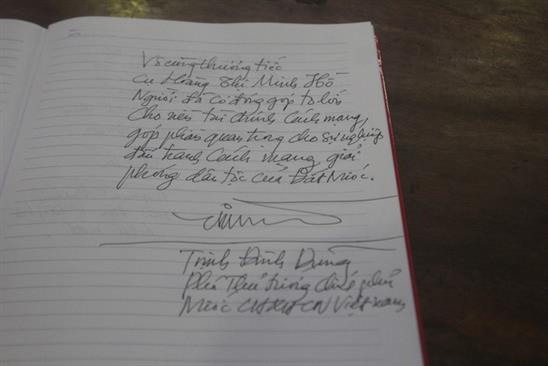 Vô cùng thương tiếc
Cụ Hoàng Thị Minh Hồ
Người đã có đóng góp to lớn
cho nền tài chính Cách mạng,
góp phần quan trọng cho sự nghiệp
đấu tranh Cách mạng, giải
phóng dân tộc của Đất Nước.
Trịnh Đình Dũng
Phó Thủ tướng chính phủ
Nước CHXHCN Việt Nam